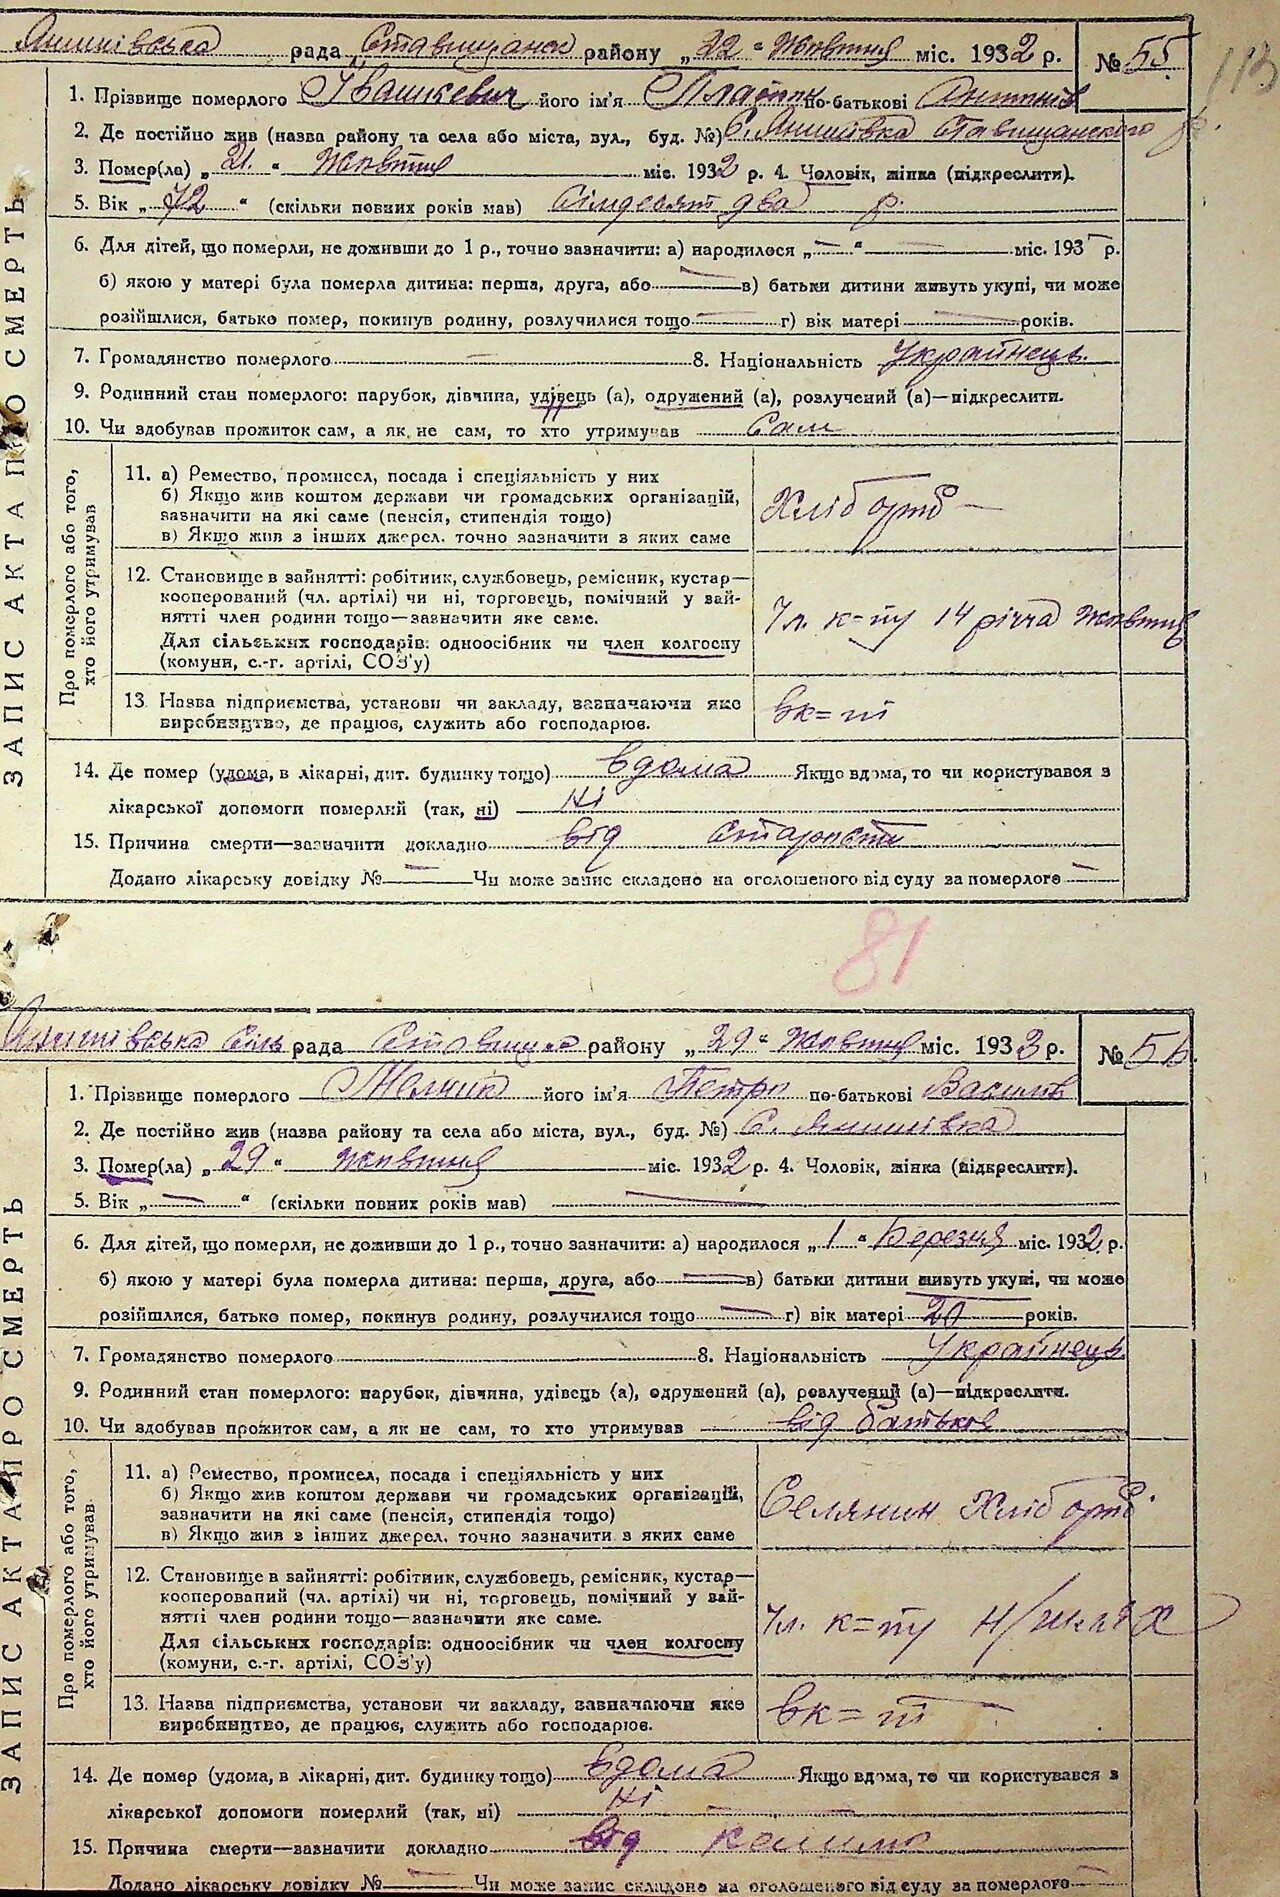 Янишівська рада Ставищанськ району „22“ Жовтня міс. 1932 р. № 55
113
1. Прізвище померлого Івашкевич його ім'я Платон по-батькові Антонів
2. Де постійно жив (назва району та села або міста, вул., буд. №) С. Янишівка Ставищанского р.
3. Помер(ла) „21“ Жовтня міс. 1932 р. 4. Чоловік, жінка (підкреслити).
5. Вік „72“ (скільки повних років мав) Сімдесят два р.
6. Для дітей, що померли, не доживши до 1 р., точно зазначити: а) народилося „—“ — міс. 193— р.
б) якою у матері була померла дитина: перша, друга, або — в) батьки дитини живуть укупі, чи може
розійшлися, батько помер, покинув родину, розлучилися тощо — г) вік матері — років.
7. Громадянство померлого — 8. Національність Українець.
9. Родинний стан померлого: парубок, дівчина, удівець (а), одружений (а), розлучений (а)—підкреслити.
10. Чи здобував прожиток сам, а як не сам, то хто утримував Сам
ЗАПИС АКТА ПРО СМЕРТЬ
Про померлого або того, хто його утримував
11. а) Ремество, промисел, посада і спеціяльність у них
б) Якщо жив коштом держави чи громадських організацій,
зазначити на які саме (пенсія, стипендія тощо)
в) Якщо жив з інших джерел, точно зазначити з яких саме
Хлібороб —
12. Становище в зайнятті: робітник, службовець, ремісник, кустар—
кооперований (чл. артілі) чи ні, торговець, помічний у зай-
нятті член родини тощо—зазначити яке саме.
Для сільських господарів: одноосібник чи член колгоспу
(комуни, с.-г. артілі, СОЗ'у)
Чл. к=пу 14 річча Жовтня
13. Назва підприємства, установи чи закладу, зазначаючи яке
виробництво, де працює, служить або господарює.
вк=ті
14. Де помер (удома, в лікарні, дит. будинку тощо) вдома Якщо вдома, то чи користувався з
лікарської допомоги померлий (так, ні) ні
15. Причина смерти—зазначити докладно від старости
Додано лікарську довідку № — Чи може запис складено на оголошеного від суду за померлого —
81
Янишівська Сіль рада району „29“ Жовтня міс. 1933 р. № 56.
1. Прізвище померлого його ім'я Петро по-батькові Василів
2. Де постійно жив (назва району та села або міста, вул., буд. №) С. Янишівка
3. Помер(ла) „29“ Жовтня міс. 1932 р. 4. Чоловік, жінка (підкреслити).
5. Вік „—“ (скільки повних років мав) —
6. Для дітей, що померли, не доживши до 1 р., точно зазначити: а) народилося „1“ Березня міс. 1932 р.
б) якою у матері була померла дитина: перша, друга, або — в) батьки дитини живуть укупі, чи може
розійшлися, батько помер, покинув родину, розлучилися тощо — г) вік матері 20 років.
7. Громадянство померлого 8. Національність Українець
9. Родинний стан померлого: парубок, дівчина, удівець (а), одружений (а), розлучений (а)—підкреслити.
10. Чи здобував прожиток сам, а як не сам, то хто утримував від батьків
ЗАПИС АКТА ПРО СМЕРТЬ
Про померлого або того, хто його утримував
11. а) Ремество, промисел, посада і спеціяльність у них
б) Якщо жив коштом держави чи громадських організацій,
зазначити на які саме (пенсія, стипендія тощо)
в) Якщо жив з інших джерел, точно зазначити з яких саме
Селянин Хлібороб
12. Становище в зайнятті: робітник, службовець, ремісник, кустар—
кооперований (чл. артілі) чи ні, торговець, помічний у зай-
нятті член родини тощо—зазначити яке саме.
Для сільських господарів: одноосібник чи член колгоспу
(комуни, с.-г. артілі, СОЗ'у)
Чл. к=пу
13. Назва підприємства, установи чи закладу, зазначаючи яке
виробництво, де працює, служить або господарює.
вк=ті —
14. Де помер (удома, в лікарні, дит. будинку тощо) вдома Якщо вдома, то чи користувався з
лікарської допомоги померлий (так, ні) ні —
15. Причина смерти—зазначити докладно від
Додано лікарську довідку № — Чи може запис складено на оголошеного від суду за померлого —